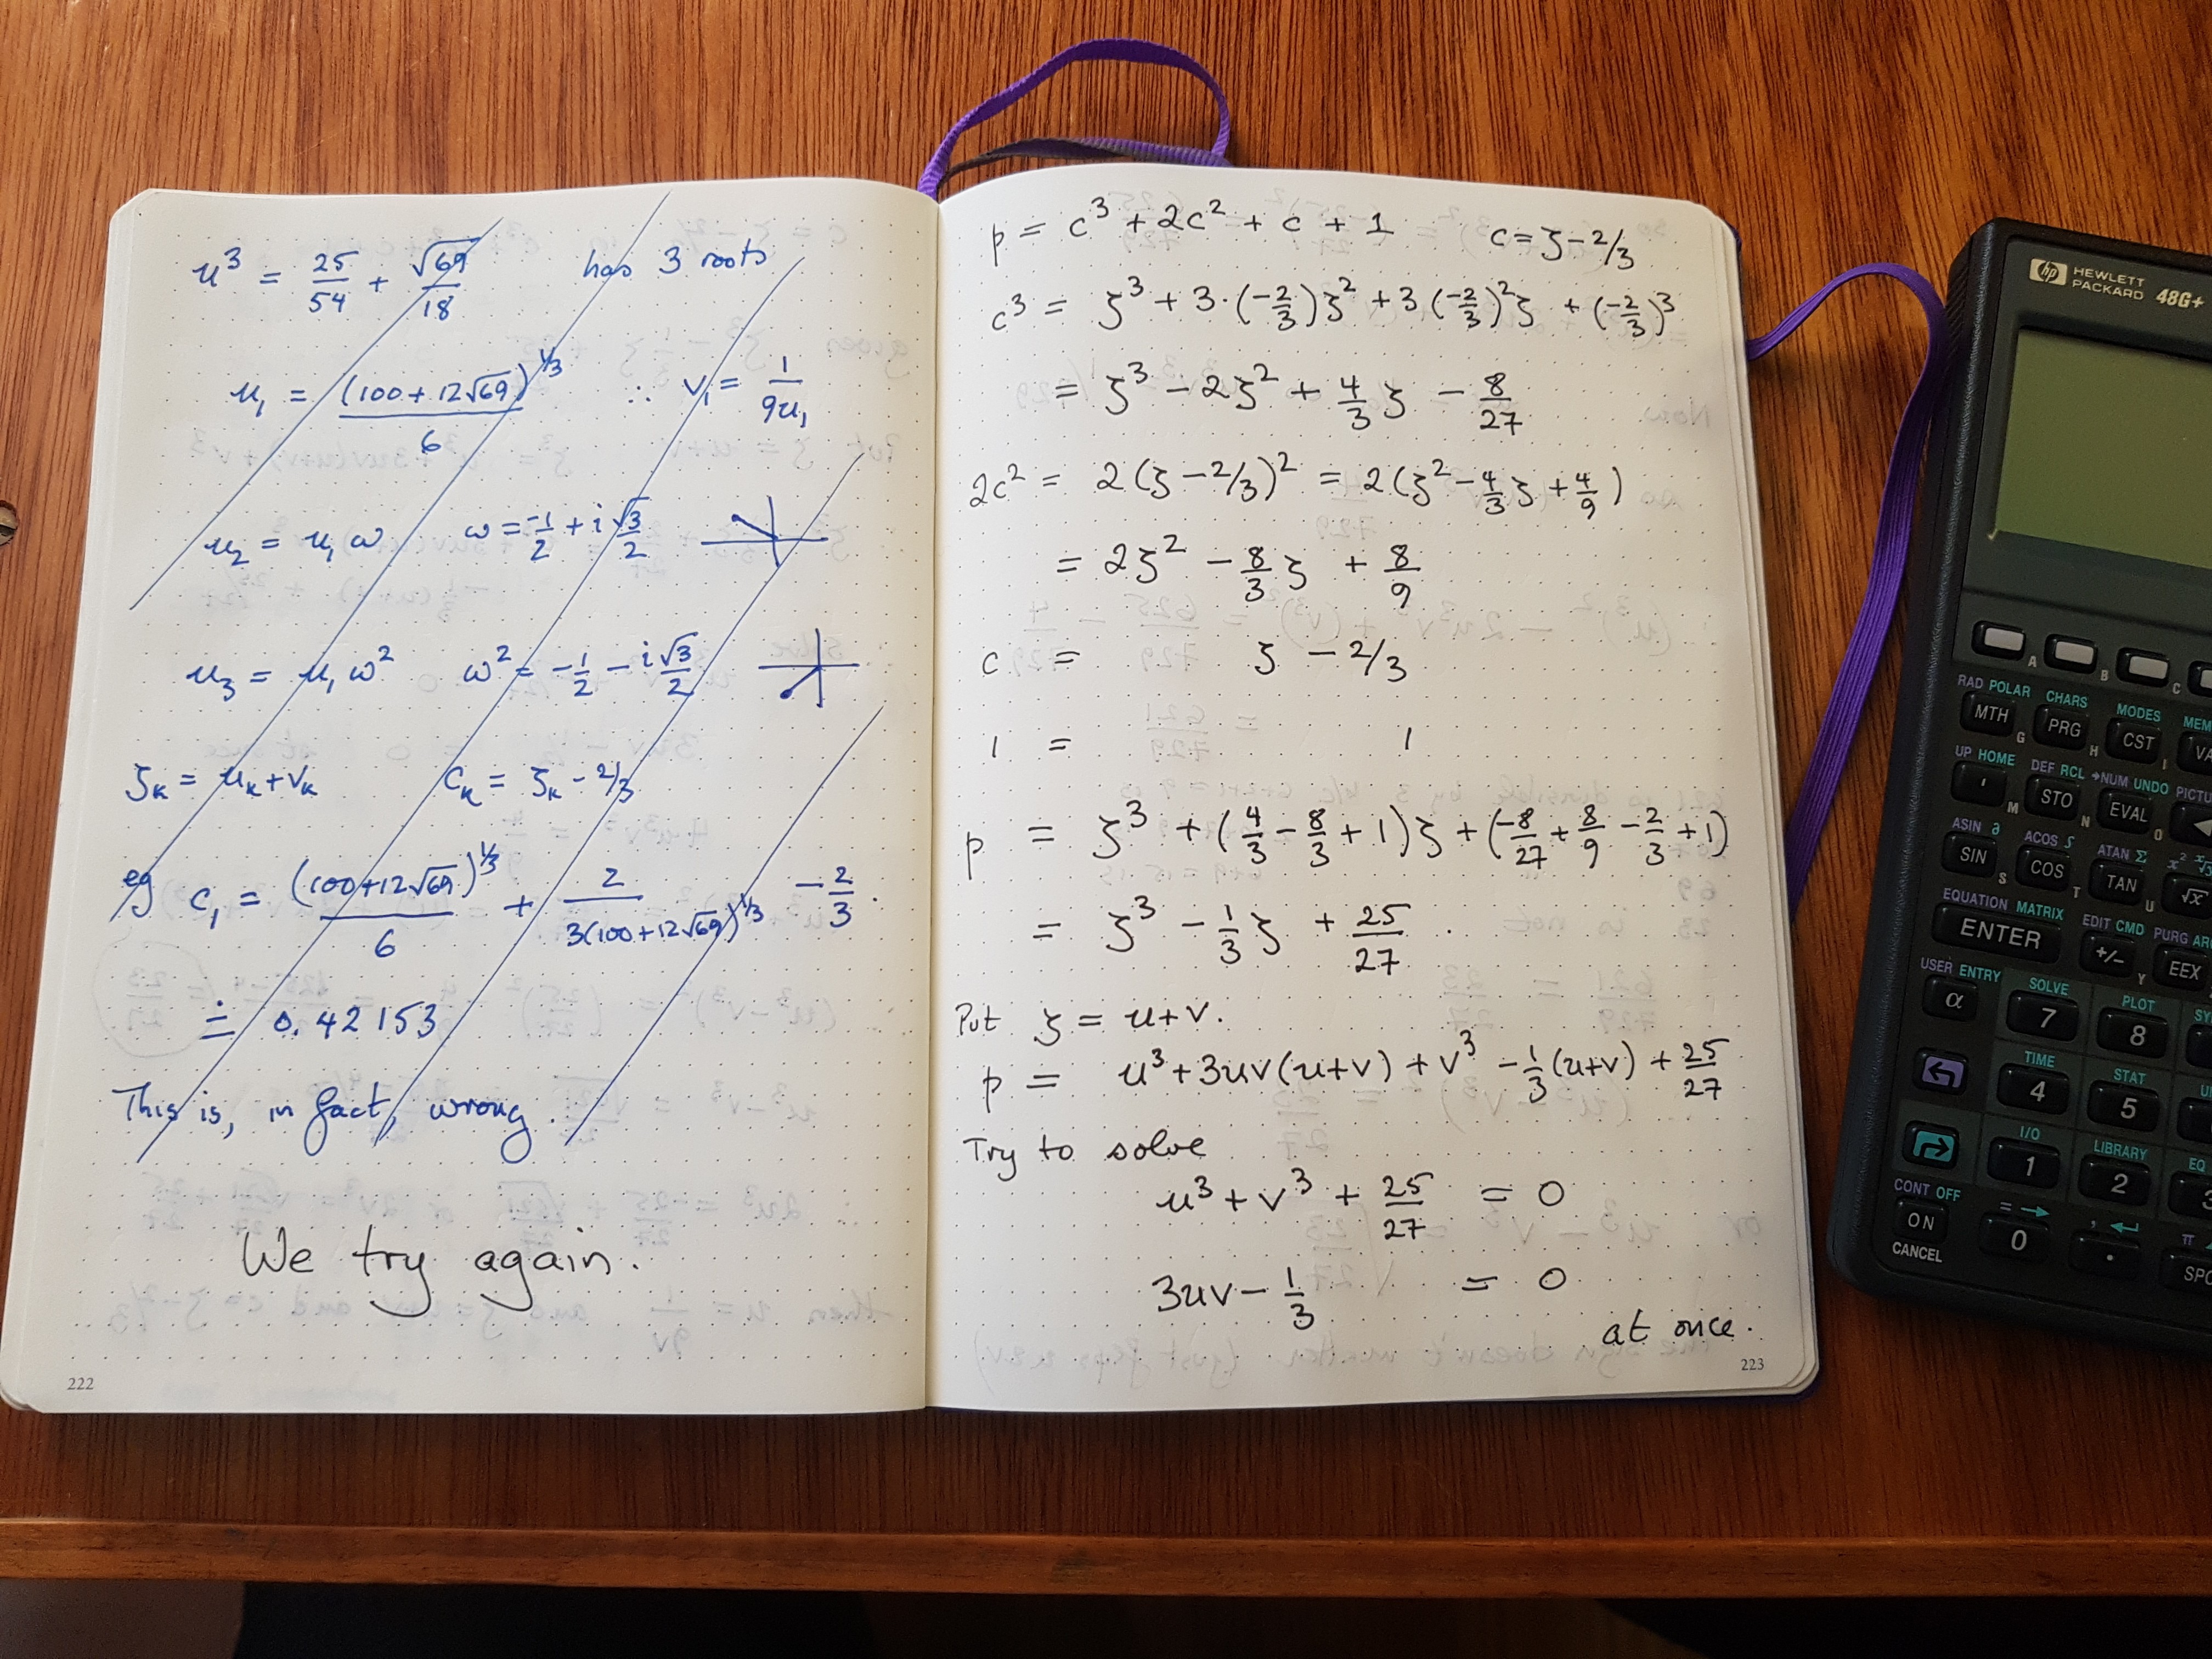 u³ = 25/54 + √69/18 has 3 roots
u₁ = (100+12√69)^1/3 / 6 ∴ v₁ = 1/9u₁
u₂ = u₁ω ω = -1/2 + i√3/2
u₃ = u₁ω² ω² = -1/2 - i√3/2
ζₖ = uₖ+vₖ cₖ = ζₖ - 2/3
eg c₁ = (100+12√69)^1/3 / 6 + 2/3(100+12√69)^1/3 - 2/3.
≐ 0.42153
This is, in fact, wrong.
We try again.
222
p = c³ + 2c² + c + 1 c = ζ-2/3
c³ = ζ³ + 3·(-2/3)ζ² + 3(-2/3)²ζ + (-2/3)³
= ζ³ - 2ζ² + 4/3 ζ - 8/27
2c² = 2(ζ-2/3)² = 2(ζ² - 4/3 ζ + 4/9)
= 2ζ² - 8/3 ζ + 8/9
c = ζ - 2/3
1 = 1
p = ζ³ + (4/3 - 8/3 + 1)ζ + (-8/27 + 8/9 - 2/3 + 1)
= ζ³ - 1/3 ζ + 25/27.
Put ζ = u+v.
p = u³+3uv(u+v) + v³ - 1/3(u+v) + 25/27
Try to solve
u³ + v³ + 25/27 = 0
3uv - 1/3 = 0
at once.
223
hp HEWLETT PACKARD 48G+
A B C
RAD POLAR CHARS MODES
MTH PRG CST
G H I
UP HOME DEF RCL →NUM UNDO
' STO EVAL
M N O
ASIN ∂ ACOS ∫ ATAN Σ
SIN COS TAN √x
S T U
EQUATION MATRIX EDIT CMD
ENTER +/- EEX
Y
USER ENTRY SOLVE PLOT
α 7 8
TIME STAT
4 5
I/O LIBRARY EQ
1 2
CONT OFF = → , ↵ π
ON 0 .
CANCEL